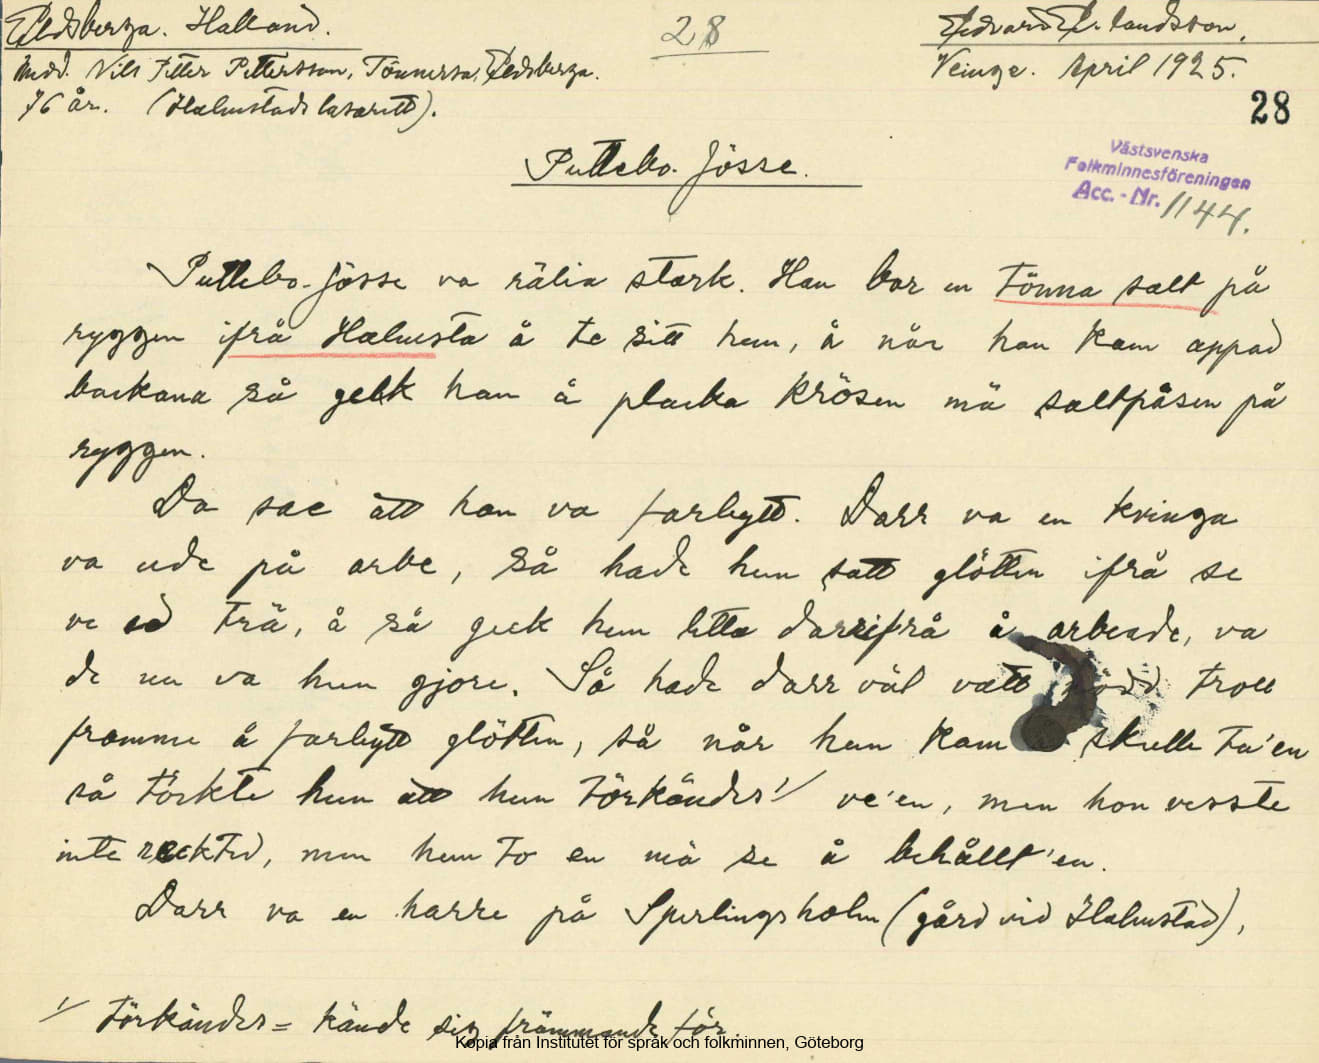 Eldsberga. Halland.
28
Edvard E-landsson,
Medd. Nils Petter Pettersson, Tönnersa, Eldsberga.
Veinge. April 1925.
76 år. (Halmstads lasarett).
28
Puttebo-Jösse.
Västsvenska
Folkminnesföreningen
Acc. - Nr. 1144.
Puttebo-Jösse va rälia stark. Han bar en tönna salt på
ryggen ifrå Halmsta å te sitt hem, å når han kam oppad
backana så geck han å placka krösen mä saltpåsen på
ryggen.
Da sae att han va farbytt. Darr va en kvinga
va ude på arbe, så hade hun satt glötten ifrå se
ve ed trä, å så geck hun litta darrifrå å arbeade, va
de nu va hun gjore. Så hade darr väl vatt nödd troll
framme å farbytt glötten, så når hun kam å skulle ta'en
så törkte hun att hun förkändes 1/ ve'en, men hon vesste
inte reckted, men hun to en mä se å behållt'en.
Darr va en harre på Sperlingsholm (gård vid Halmstad),
1/ förkändes = kände sig främmande för.
Kopia från Institutet för språk och folkminnen, Göteborg